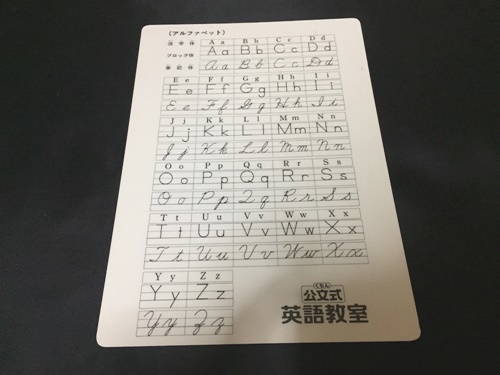 〔アルファベット〕
活字体 A a B b C c D d
ブロック体 A a B b C c D d
筆記体 A a B b C c D d
E e F f G g H h I i
E e F f G g H h I i
E e F f G g H h I i
J j K k L l M m N n
J j K k L l M m N n
J j K k L l M m N n
O o P p Q q R r S s
O o P p Q q R r S s
O o P p Q q R r S s
T t U u V v W w X x
T t U u V v W w X x
T t U u V v W w X x
Y y Z z
Y y Z z
Y y Z z
くもん
公文式
英語教室